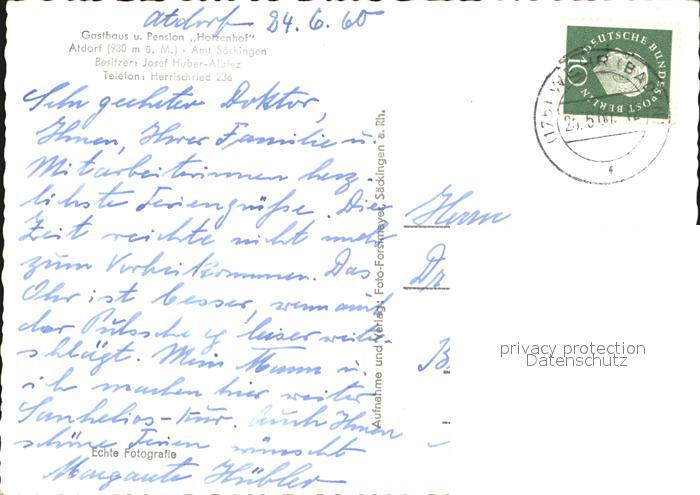 Atdorf 24.6.60
Gasthaus u. Pension „Hotzenhof"
Atdorf (930 m ü. M.) · Amt Säckingen
Besitzer: Josef Huber-Albiez
Telefon: Herrischried 236
Sehr geehrter Doktor,
Ihnen, Ihrer Familie u.
Mitarbeiterinnen herz-
lichste Feriengrüße. Die
Zeit reichte nicht mehr
zum Vorbeikommen. Das
Ohr ist besser, wenn auch
der Puls leiser weiter
schlägt. Mein Mann u.
ich machen hier weiter
Sanhelios-Kur. Auch Ihnen
schöne Ferien wünscht
Margarete Hübler
Echte Fotografie
Aufnahme und Verlag: Foto-Forstmeyer, Säckingen a. Rh.
Herrn
Dr
B
10
DEUTSCHE BUNDESPOST BERLIN
(17b) WEHR (BADEN)
privacy protection
Datenschutz